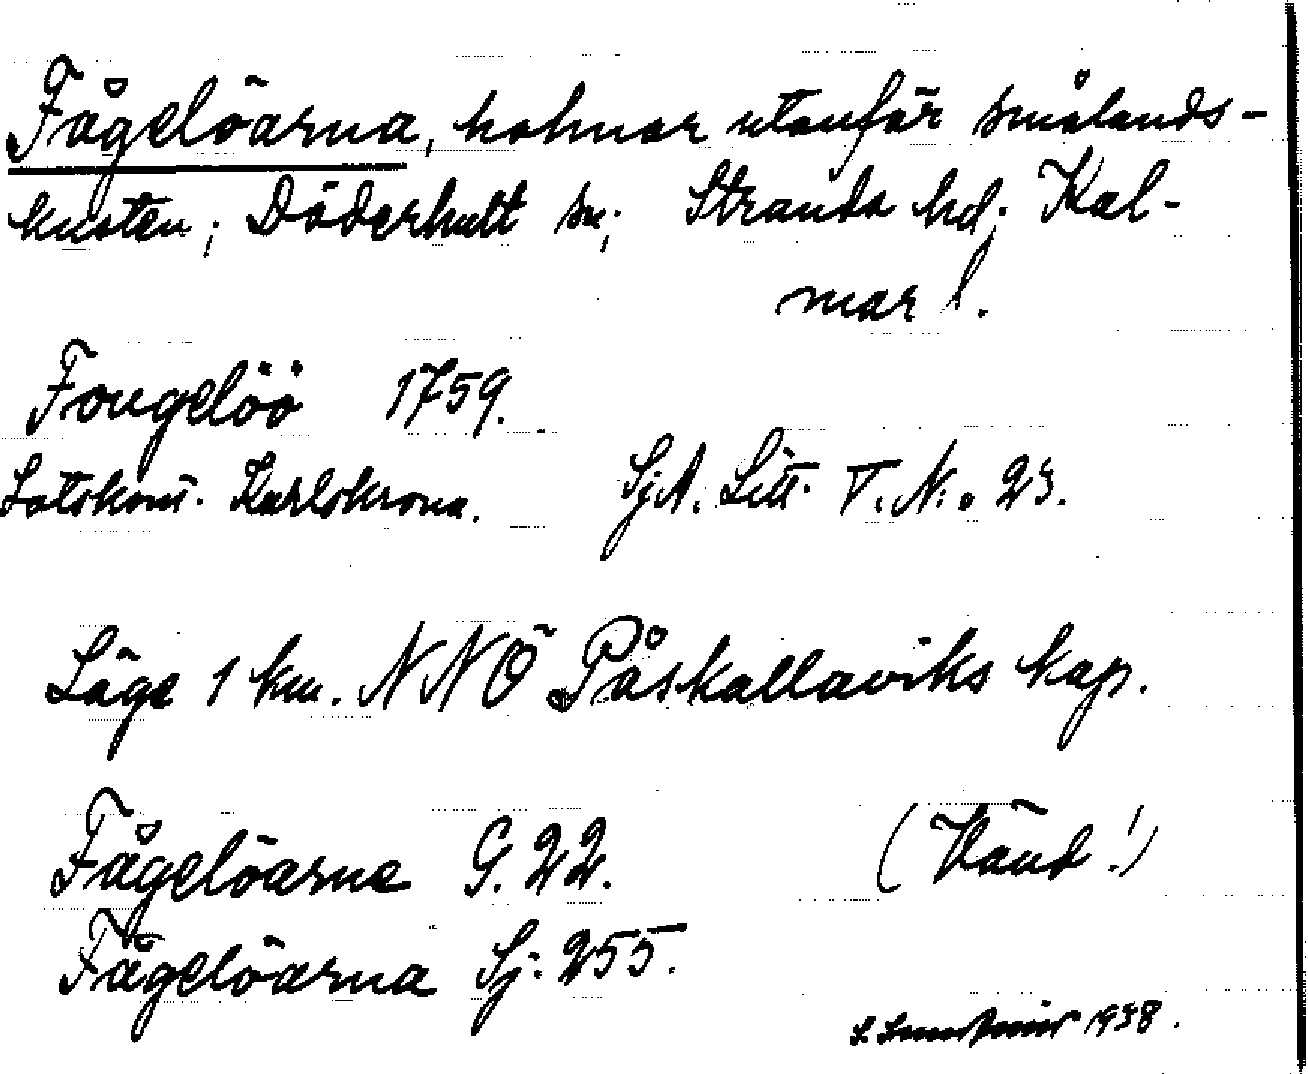 Fågelöarna, holmar utanför smålands-
kusten; Döderhult sn; Stranda hd; Kal-
mar l.
Fougelöö 1759.
Lotskont. Karlskrona. SjA. Litt. T. N:o 23.
Läge 1 km. NNÖ Påskallaviks kap.
Fågelöarne G. 22. (Vänd!)
Fågelöarna Sj. 255.
1938.